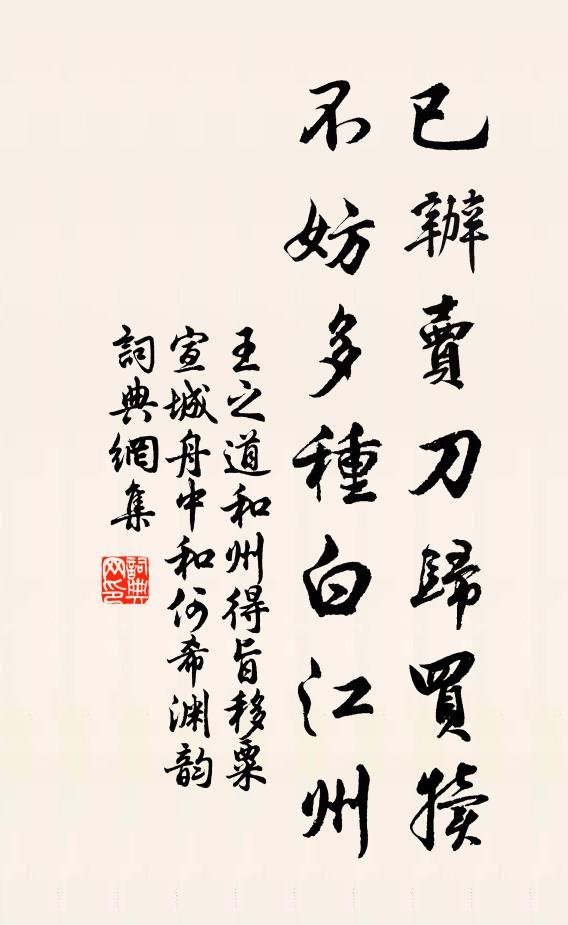 已辦賣刀歸買犢
不妨多種白江州
王之道和州得旨移粟
宣城舟中和何希渊韵
詞典網集
詞典网印